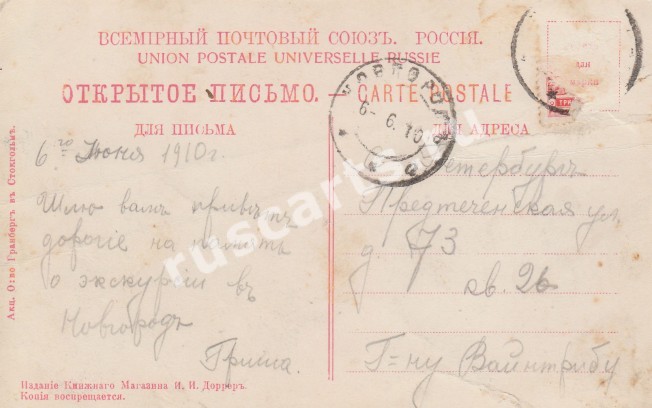 ВСЕМІРНЫЙ ПОЧТОВЫЙ СОЮЗЪ. РОССІЯ.
UNION POSTALE UNIVERSELLE RUSSIE
ОТКРЫТОЕ ПИСЬМО. — CARTE POSTALE
ДЛЯ ПИСЬМА
ДЛЯ АДРЕСА
6го Іюня 1910г.
Шлю вамъ привѣтъ
дорогіе на память
о экскурсіи въ
Новгородъ
Гриша.
Петербургъ
Предтеченская ул.
д. 73
кв. 26
Г=ну Вайнтрибу
6-6.10
для
марки
Акц. О-во Гранбергъ въ Стокгольмѣ.
Изданіе Книжнаго Магазина И. И. Дорреръ.
Копія воспрещается.
ruscarts.ru